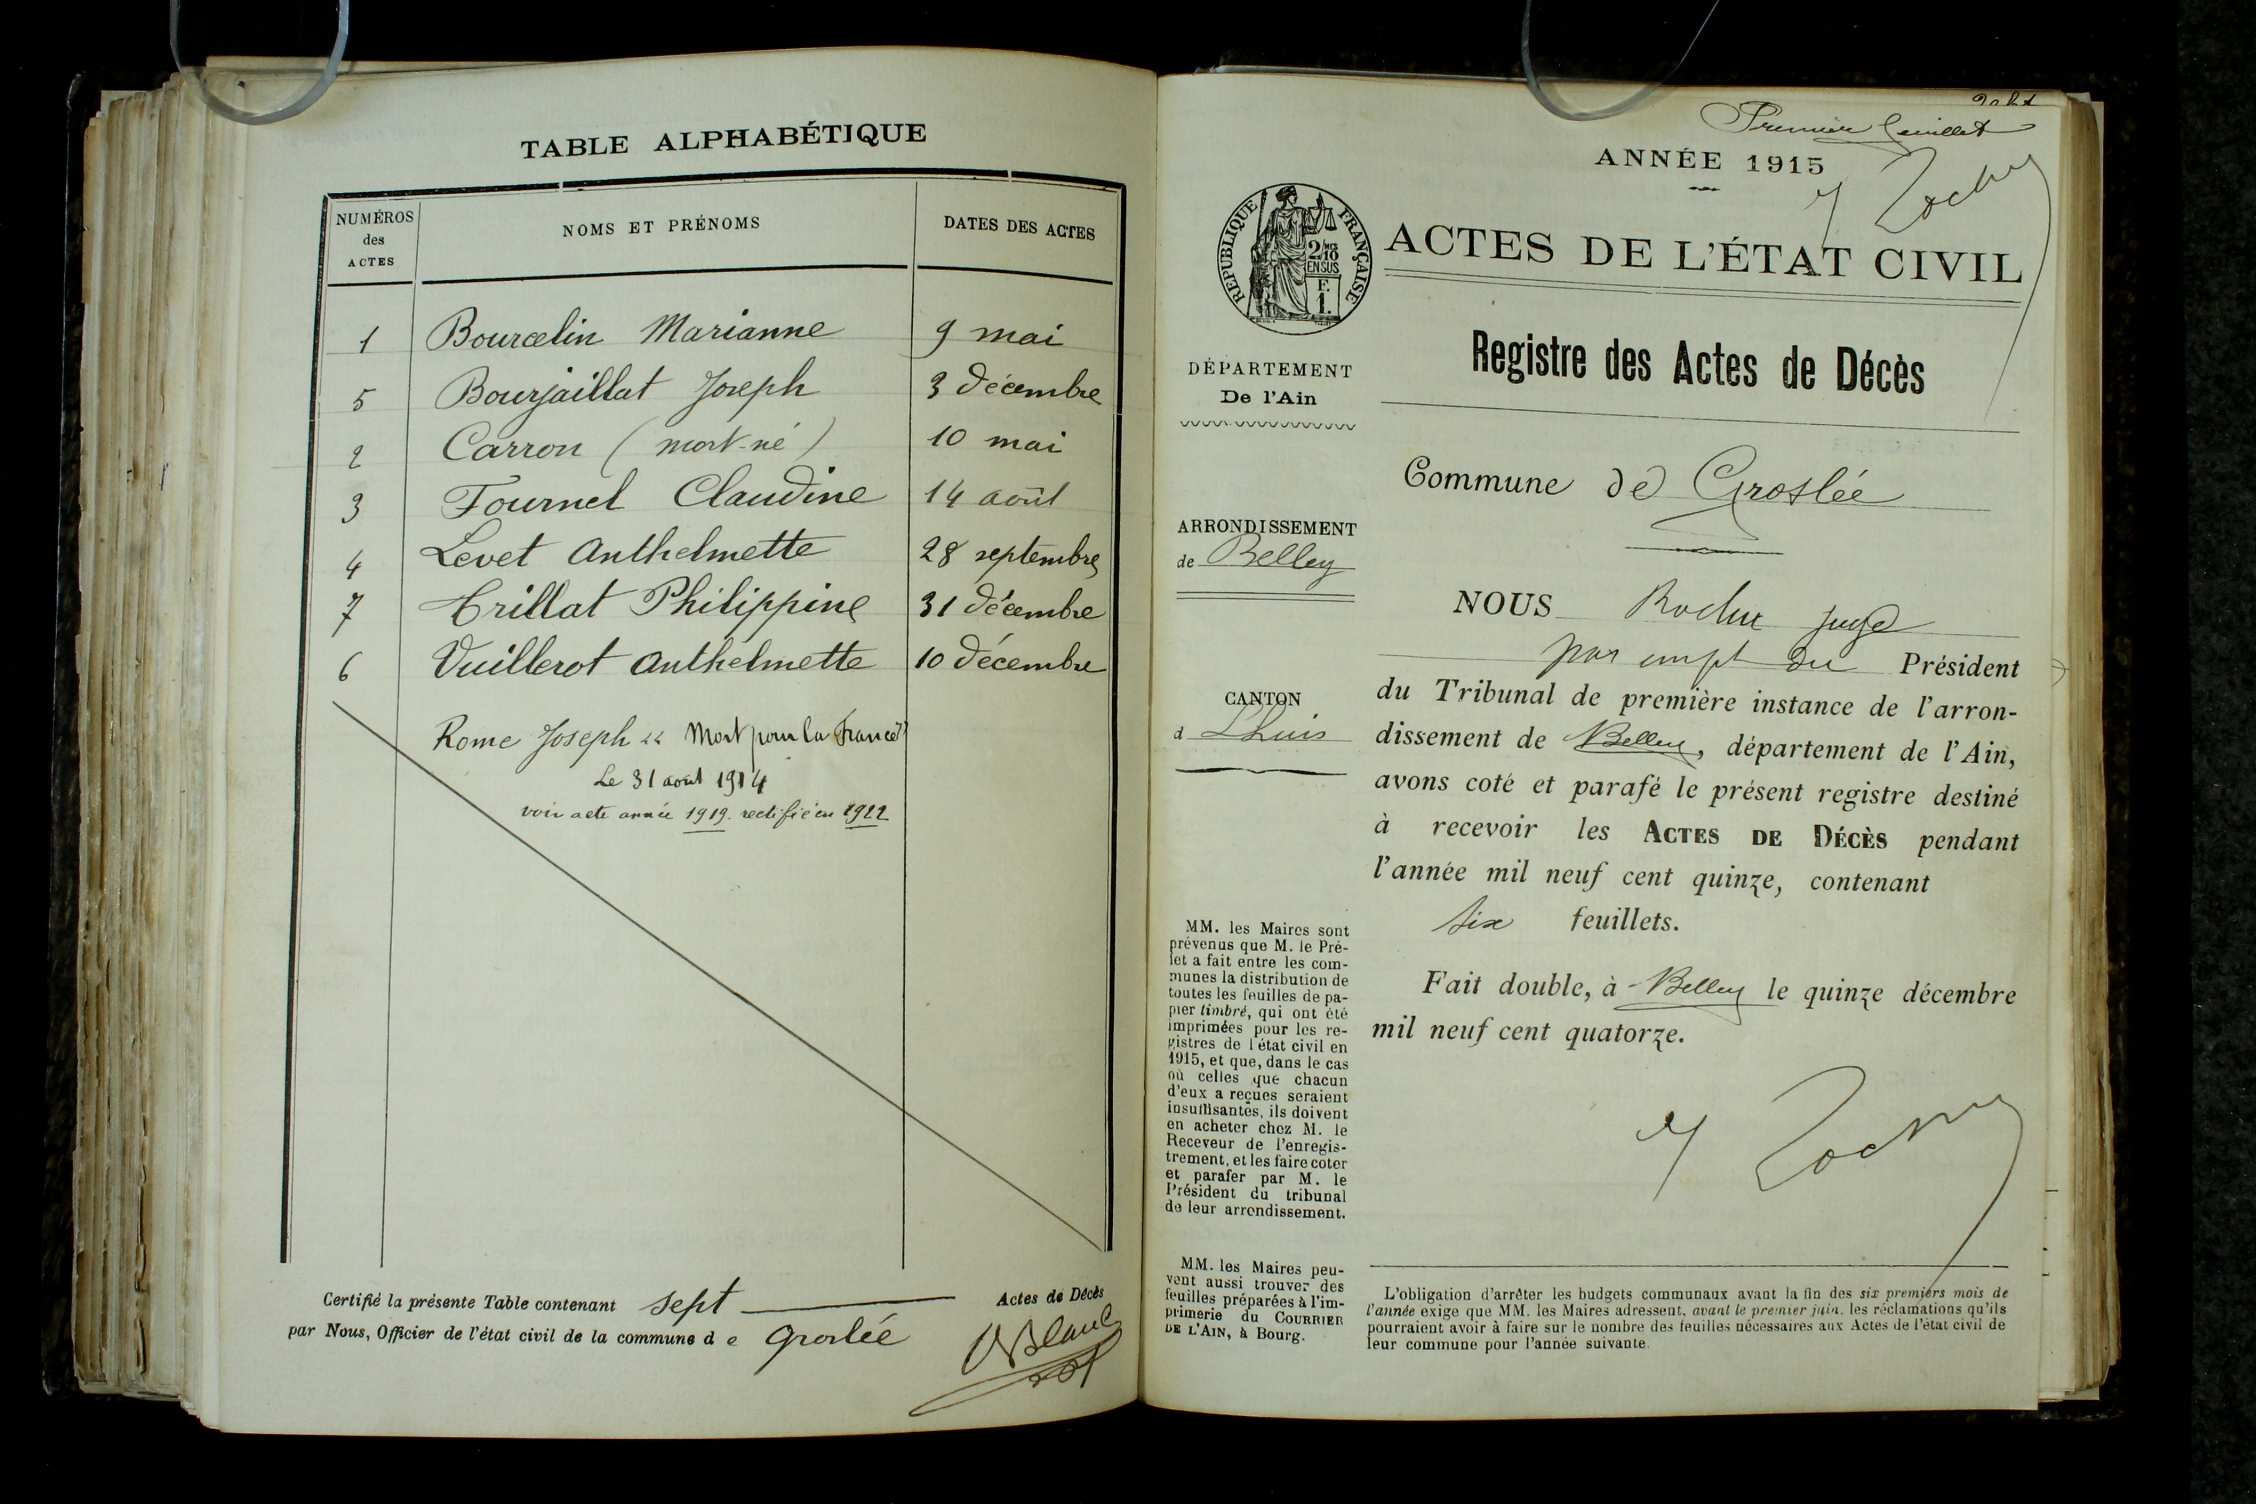 TABLE ALPHABÉTIQUE
NUMÉROS
des
ACTES
NOMS ET PRÉNOMS
DATES DES ACTES
1 Bourcelin Marianne 9 mai
5 Bourjaillat Joseph 3 décembre
2 Carron (mort-né) 10 mai
3 Fournel Claudine 14 août
4 Levet Anthelmette 28 septembre
7 Trillat Philippine 31 décembre
6 Vuillerot Anthelmette 10 décembre
Rome Joseph "Mort pour la France"
Le 31 août 1914
voir acte année 1919. rectifié en 1922
Certifié la présente Table contenant sept Actes de Décès
par Nous, Officier de l'état civil de la commune d e Groslée
Blanc
Premier feuillet
ANNÉE 1915
RÉPUBLIQUE FRANÇAISE
2/10
EN SUS
F.
1.
ACTES DE L'ÉTAT CIVIL
Registre des Actes de Décès
DÉPARTEMENT
De l'Ain
Commune de Groslée
ARRONDISSEMENT
de Belley
CANTON
d Lhuis
NOUS Roche juge
par empt du Président
du Tribunal de première instance de l'arron-
dissement de Belley, département de l'Ain,
avons coté et parafé le présent registre destiné
à recevoir les ACTES DE DÉCÈS pendant
l'année mil neuf cent quinze, contenant
six feuillets.
Fait double, à Belley le quinze décembre
mil neuf cent quatorze.
MM. les Maires sont
prévenus que M. le Pré-
fet a fait entre les com-
munes la distribution de
toutes les feuilles de pa-
pier timbré, qui ont été
imprimées pour les re-
gistres de l'état civil en
1915, et que, dans le cas
où celles que chacun
d'eux a reçues seraient
insuffisantes, ils doivent
en acheter chez M. le
Receveur de l'enregis-
trement, et les faire coter
et parafer par M. le
Président du tribunal
de leur arrondissement.
MM. les Maires peu-
vent aussi trouver des
feuilles préparées à l'im-
primerie du COURRIER
DE L'AIN, à Bourg.
L'obligation d'arrêter les budgets communaux avant la fin des six premiers mois de
l'année exige que MM. les Maires adressent, avant le premier juin, les réclamations qu'ils
pourraient avoir à faire sur le nombre des feuilles nécessaires aux Actes de l'état civil de
leur commune pour l'année suivante.